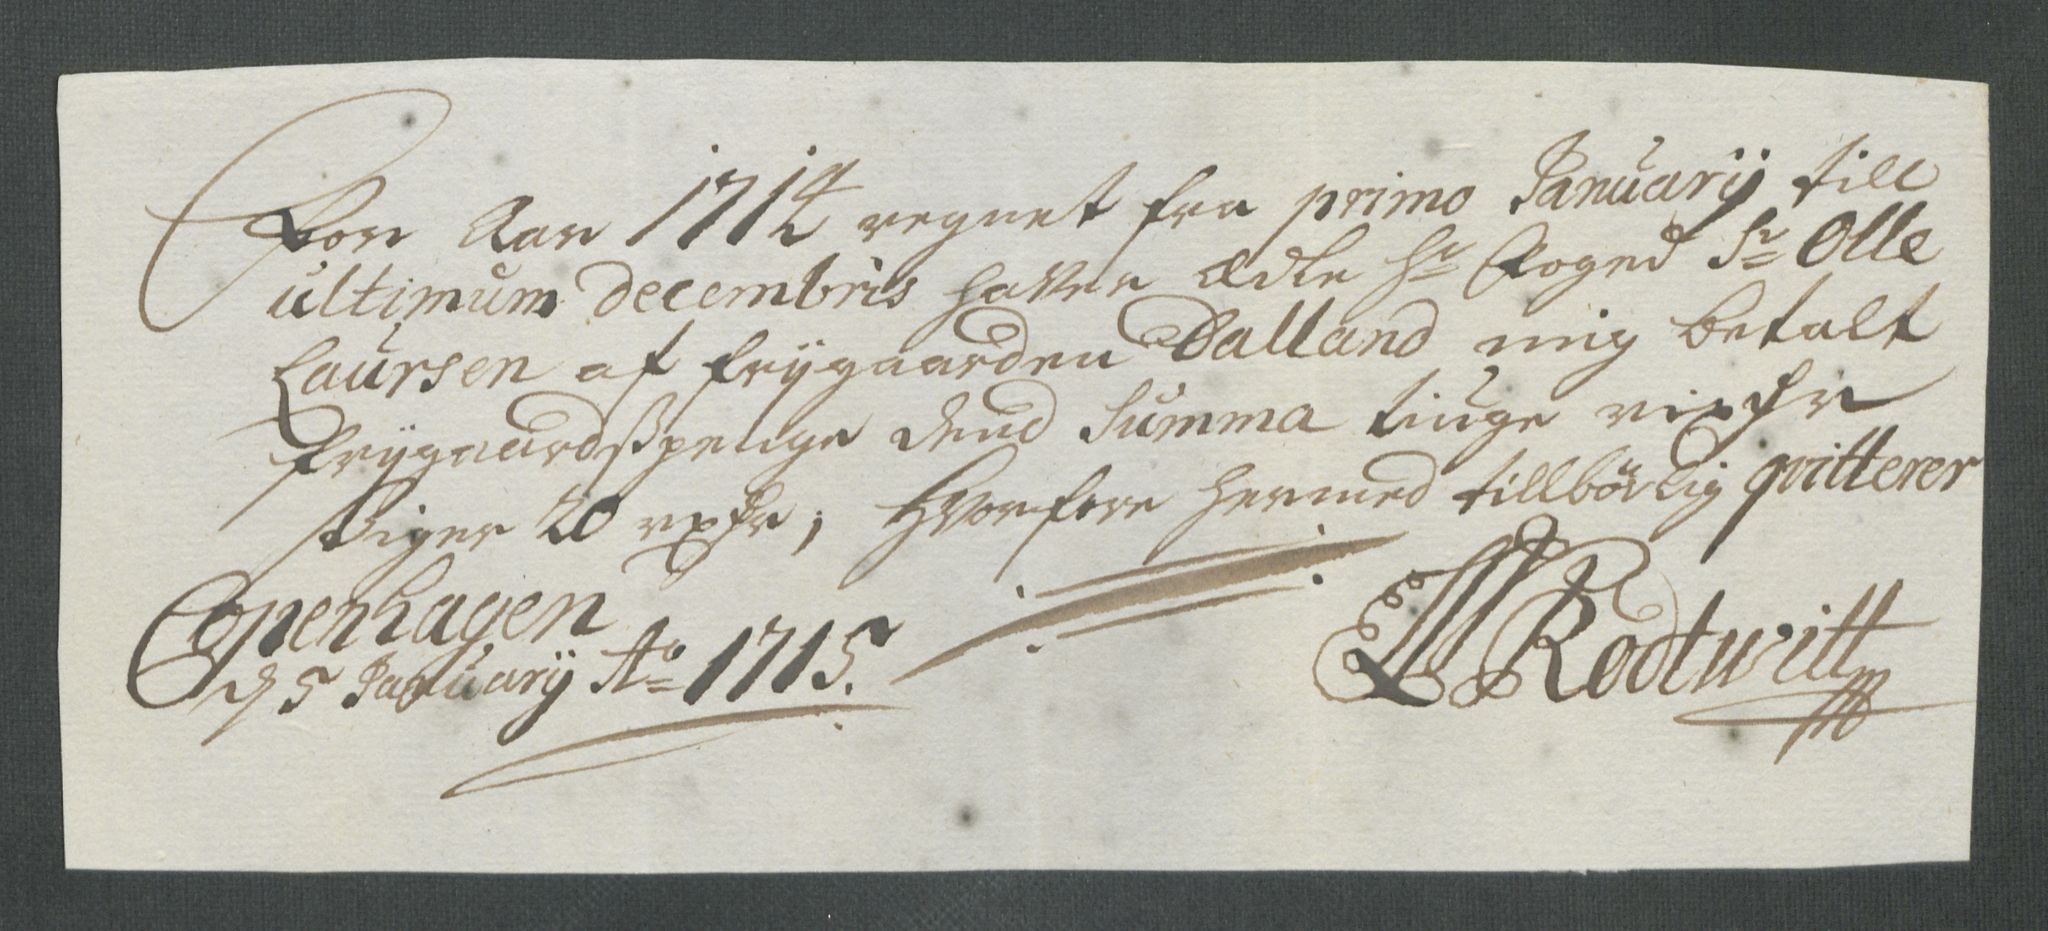 For Aar 1714 regnet fra primo Januarij till
ultimum decembris haver ædle Hr Foged Sr Olle
Laursen af frijgaarden Dalland mig betalt
frijgaardsspenge dend Summa tiuge rixdr
siger 20 rxdr, Hvorfore hermed tillbörlig qvitterer
Copenhagen
d 5 Januarij Ao 1715.
Rodtwitt